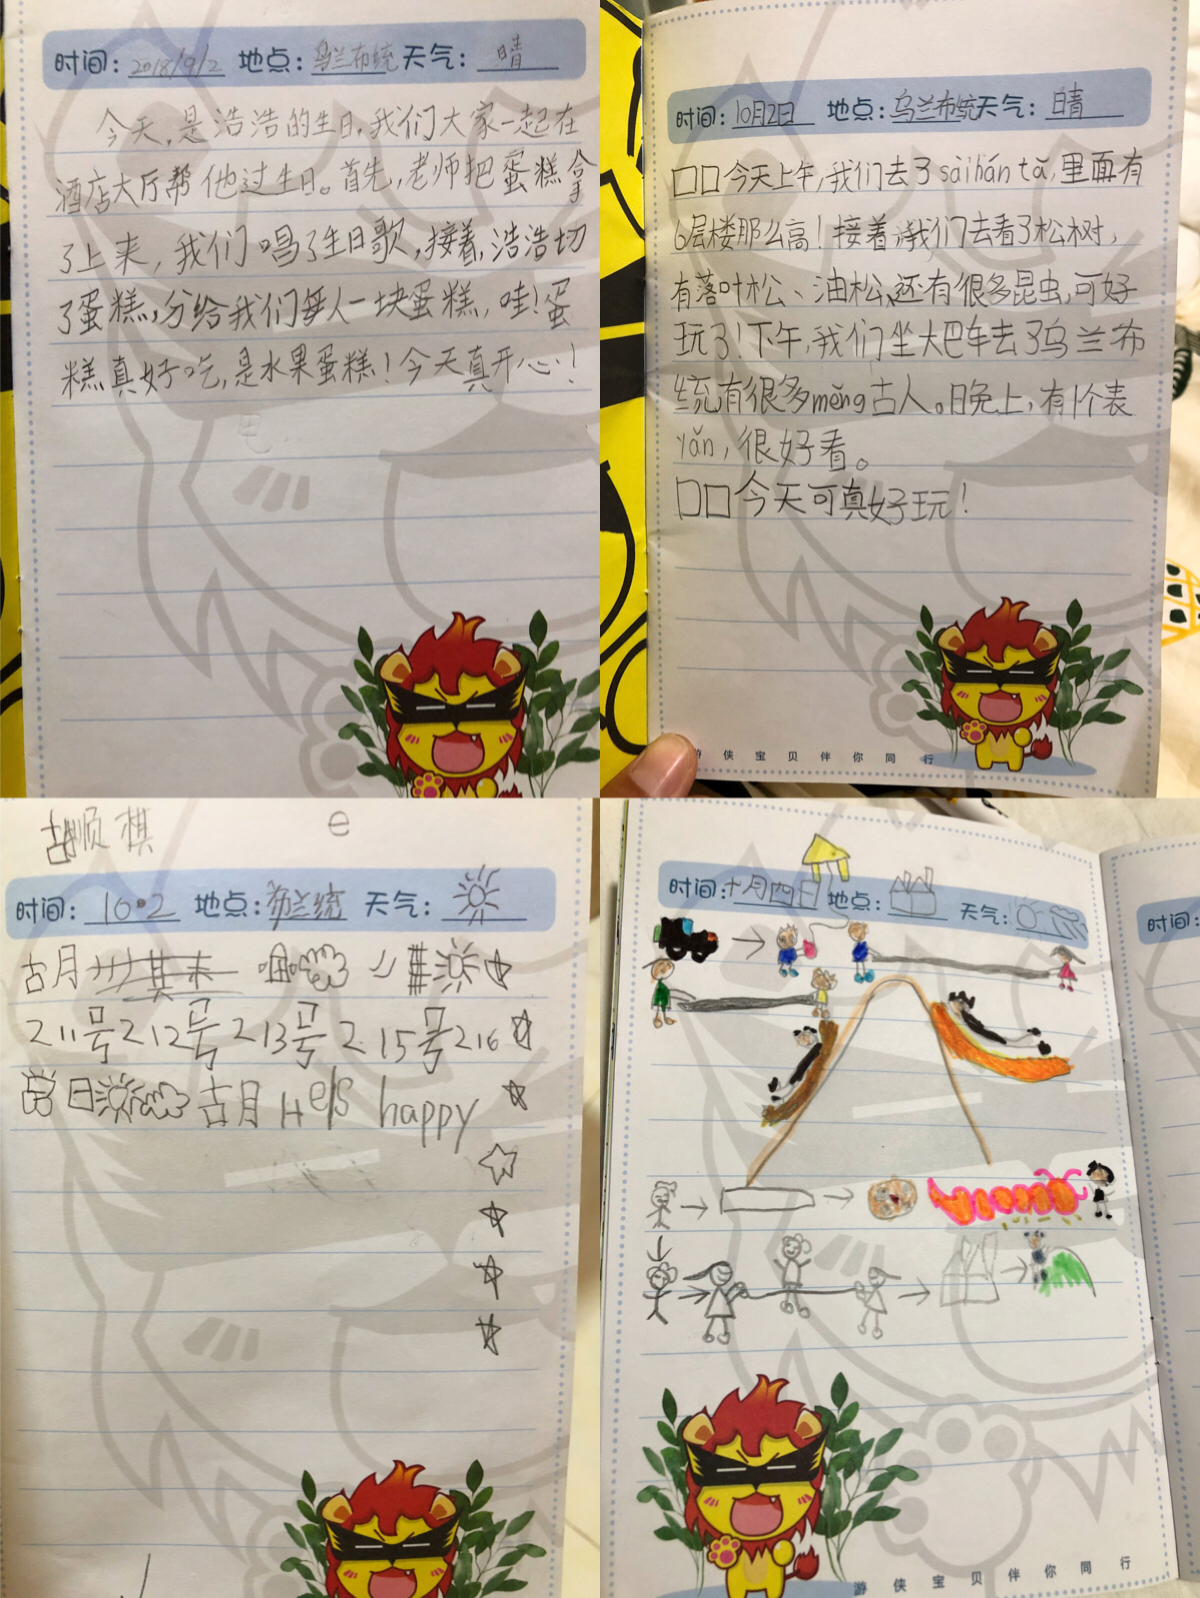 时间：2018/9/2 地点：乌兰布统 天气：晴
今天，是浩浩的生日，我们大家一起在
酒店大厅帮他过生日。首先，老师把蛋糕拿
了上来，我们唱了生日歌，接着，浩浩切
了蛋糕，分给我们每人一块蛋糕，哇！蛋
糕真好吃，是水果蛋糕！今天真开心！
时间：10月2日 地点：乌兰布统 天气：晴
口口今天上午，我们去了sàihán tǎ，里面有
6层楼那么高！接着，我们去看了松树，
有落叶松、油松，还有很多昆虫，可好
玩了！下午，我们坐大巴车去了乌兰布
统有很多měng古人。日晚上，有1个表
yǎn，很好看。
口口今天可真好玩！
游侠宝贝伴你同行
胡顺棋 e
时间：10·2 地点：兰统 天气：
古月
211号212号213号2 15号216
日 古月 He/s happy
时间：十月四日 地点： 天气：
时间：
游侠宝贝伴你同行